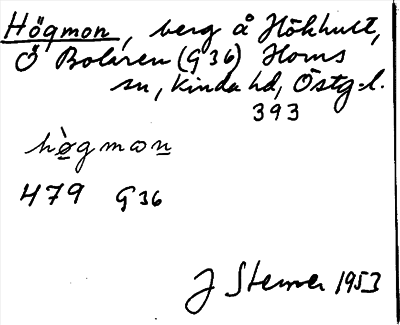 Högmon, berg å Hökhult,
Ö Bolaren (G 36) Horns
sn, Kinda hd, Östg.l.
393
hø̀gmon
479 G 36
J Sterner 1953